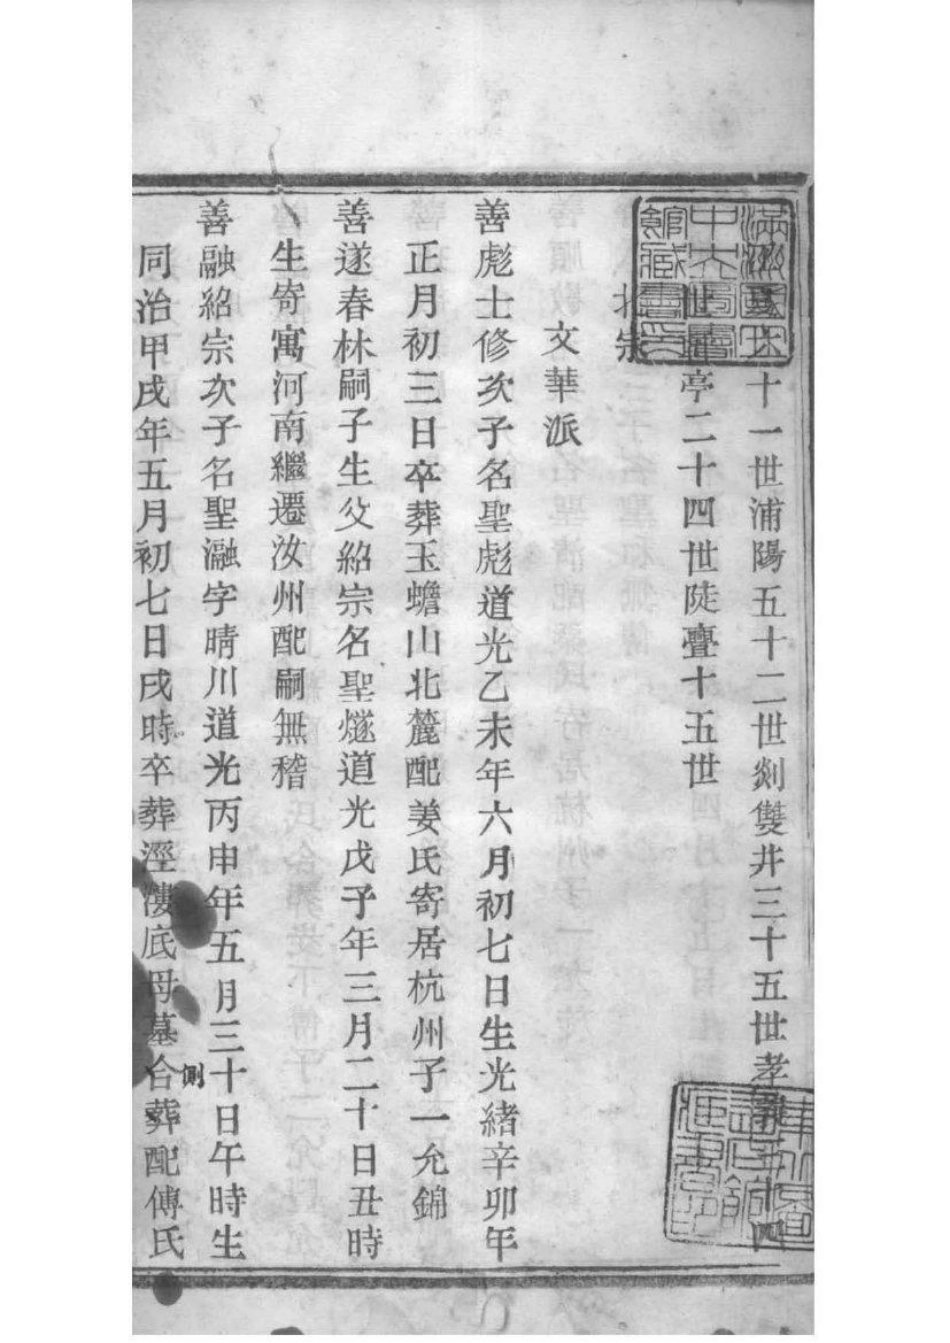 十一世浦陽五十二世剡雙井三十五世孝
世亭二十四世陡亹十五世
北宗
文華派
善彪士修次子名聖彪道光乙未年六月初七日生光緒辛卯年
正月初三日卒葬玉蟾山北麓配姜氏寄居杭州子一允錦
善遂春林嗣子生父紹宗名聖燧道光戊子年三月二十日丑時
生寄寓河南繼遷汝州配嗣無稽
善融紹宗次子名聖瀜字晴川道光丙申年五月三十日午時生
同治甲戌年五月初七日戌時卒葬湮漊底母墓側合葬配傅氏